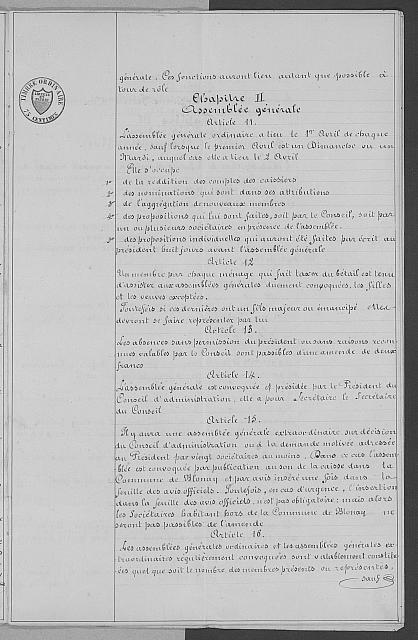 TIMBRE ORDINAIRE
75 CENTIMES
générale. Ces fonctions auront lieu autant que possible à
tour de rôle
Chapitre II
Assemblée générale
Article 11.
L'assemblée générale ordinaire a lieu le 1er Avril de chaque
année, sauf lorsque le premier Avril est un Dimanche ou un
Mardi, auquel cas elle a lieu le 2 Avril
Elle s'occupe
1° de la reddition des comptes des caissiers
2° des nominations qui sont dans ses attributions
3° de l'aggrégation de nouveaux membres
4° des propositions qui lui sont faites, soit par le Conseil, soit par
un ou plusieurs sociétaires en présence de l'assemblée.
5° des propositions individuelles qui auront été faites par écrit au
président huit jours avant l'assemblée générale
Article 12
Un membre par chaque ménage qui fait taxer du bétail est tenu
d'assister aux assemblées générales duement convoquées, les filles
et les veuves exceptées.
Toutefois si ces dernières ont un fils majeur ou émancipé elles
devront se faire représenter par lui
Article 13.
Les absences sans permission du président ou sans raisons recon-
nues valables par le Conseil sont passibles d'une amende de deux
francs
Article 14.
L'assemblée générale est convoquée et présidée par le Président du
Conseil d'administration, elle a pour Secrétaire le Secrétaire
du Conseil
Article 15.
Il y aura une assemblée générale extraordinaire sur décision
du Conseil d'administration ou à la demande motivée adressée
au Président par vingt sociétaires au moins. Dans ce cas l'assem-
blée est convoquée par publication au son de la caisse dans la
Commune de Blonay et par avis inséré une fois dans la
feuille des avis officiels. Toutefois, en cas d'urgence, l'insertion
dans la feuille des avis officiels, n'est pas obligatoire; mais alors
les Sociétaires habitant hors de la Commune de Blonay ne
seront pas passibles de l'amende
Article 16.
Les assemblées générales ordinaires et les assemblées générales ex-
traordinaires régulièrement convoquées sont valablement constitu-
ées quel que soit le nombre des membres présents ou représentés,
sauf